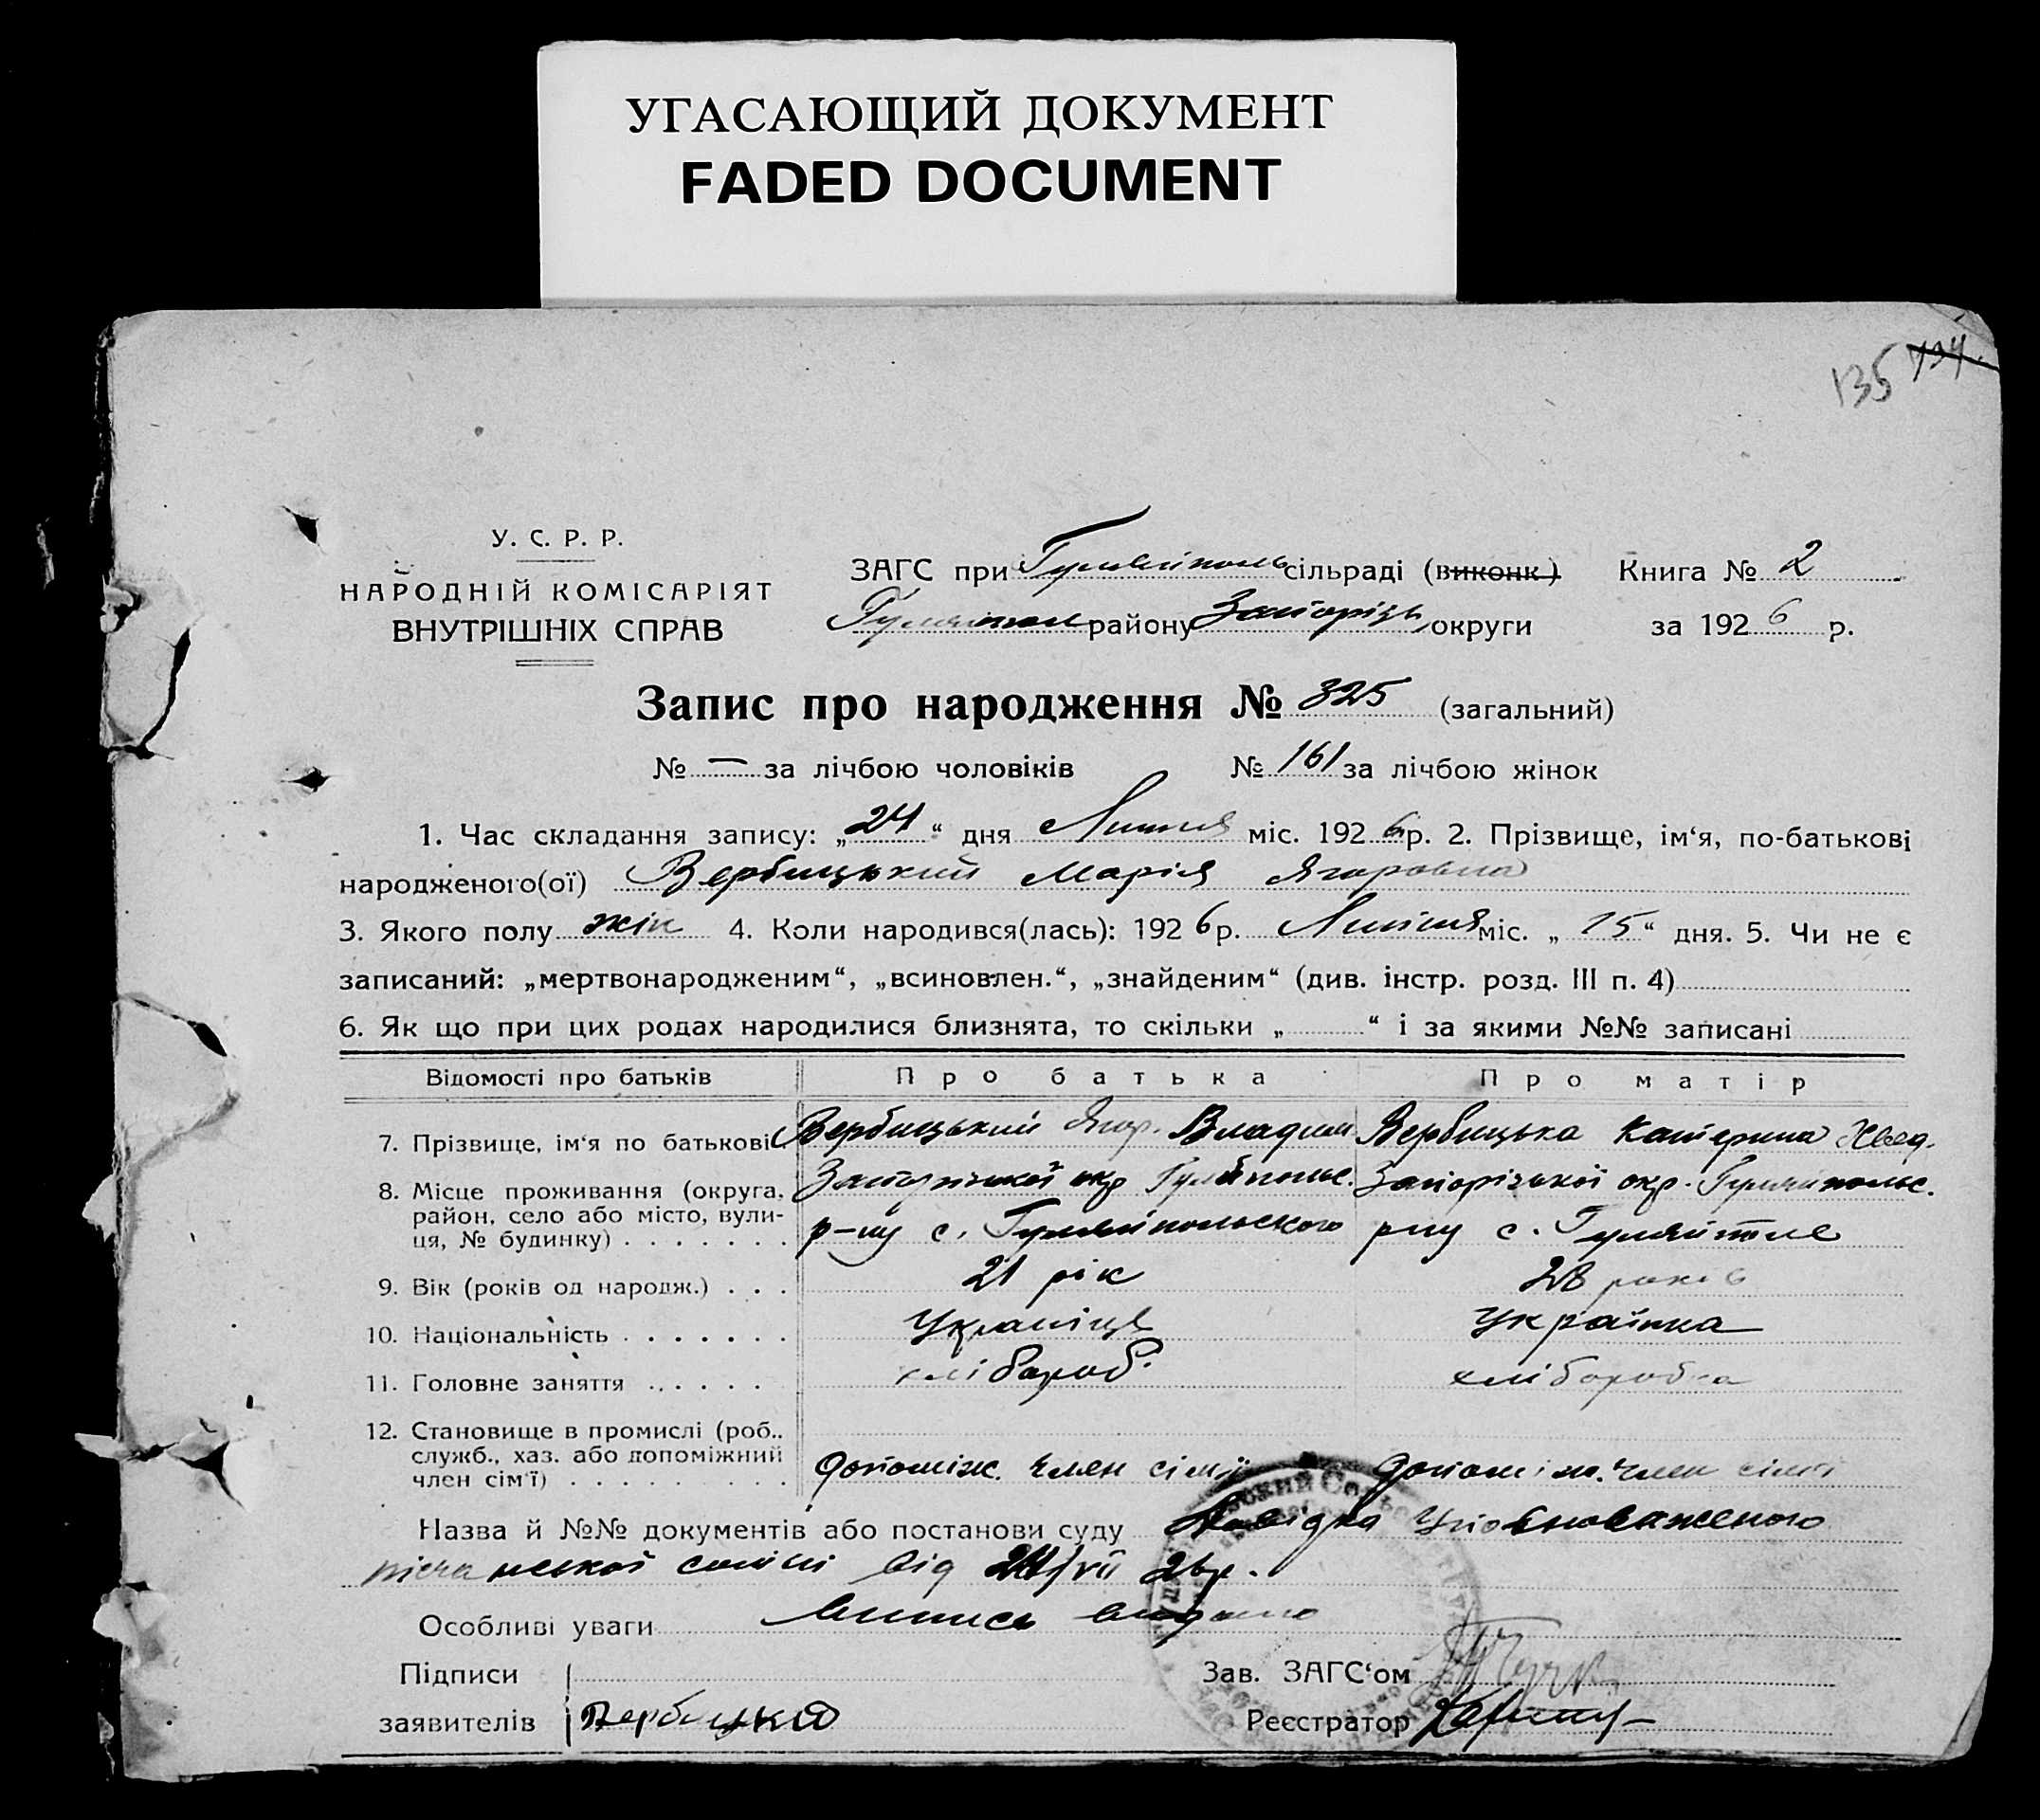 УГАСАЮЩИЙ ДОКУМЕНТ
FADED DOCUMENT
135 134.
У. С. Р. Р.
НАРОДНІЙ КОМІСАРІЯТ
ВНУТРІШНІХ СПРАВ
ЗАГС при Гуляйполь сільраді (виконк.) Книга № 2
Гуляйпол району Запорізь округи за 1926 р.
Запис про народження № 325 (загальний)
№ — за лічбою чоловіків № 161 за лічбою жінок
1. Час складання запису: „24“ дня Липня міс. 1926 р. 2. Прізвище, ім‘я, по-батькові
народженого(ої) Вербицький Марія Ягоровна
3. Якого полу жін 4. Коли народився(лась): 1926 р. Липня міс. „15“ дня. 5. Чи не є
записаний: „мертвонародженим“, „всиновлен.“, „знайденим“ (див. інстр. розд. III п. 4)
6. Як що при цих родах народилися близнята, то скільки „ “ і за якими №№ записані
Відомості про батьків Про батька Про матір
7. Прізвище, ім‘я по батькові Вербицький Ягор. Владим Вербицька Катерина Хвед.
8. Місце проживання (округа, Запорізької окр Гуляйпольс. Запорізької окр. Гуляйпольс.
район, село або місто, вули- р-ну с. Гуляйпольского рну с. Гуляйполе
ця, № будинку)
9. Вік (років од народж.) 21 рік 28 років
10. Національність Украінця Українка
11. Головне заняття хлібороб. хліборобка
12. Становище в промислі (роб.,
служб., хаз. або допоміжний
член сім‘ї) допоміж. член сімї допоміж. член сімї
Назва й №№ документів або постанови суду Довідка Уповноваженого
від 24/VII 26р.
Особливі уваги Випись видано
Підписи Зав. ЗАГС‘ом
заявителів Вербицкий Реєстратор